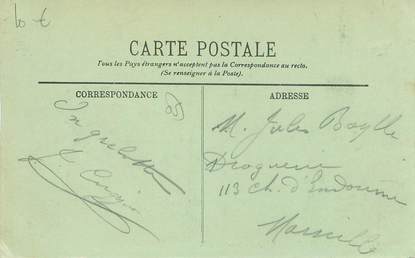 10 €
CARTE POSTALE
Tous les Pays étrangers n'acceptent pas la Correspondance au recto.
(Se renseigner à la Poste).
CORRESPONDANCE
ADRESSE
M. Jules Baylle
Droguerie
113 ch. d'Endoume
Marseille